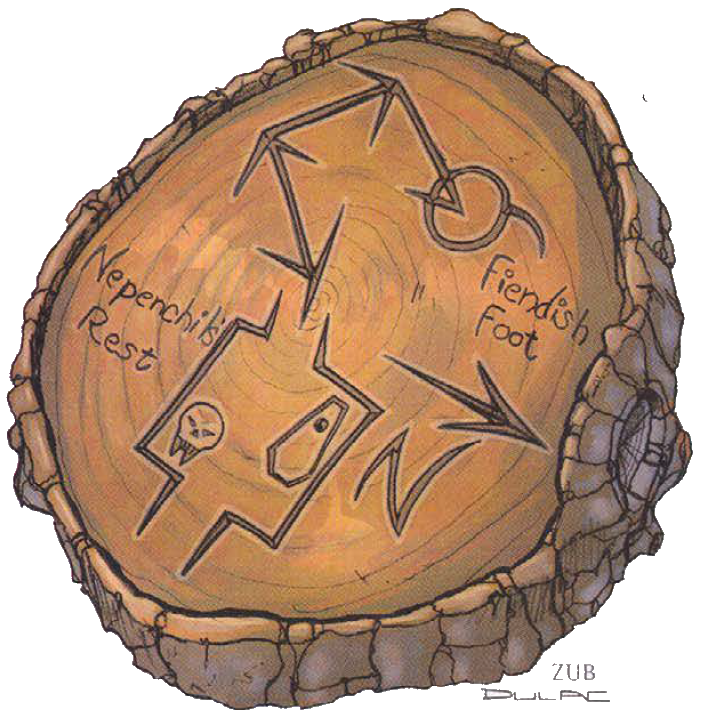 Nepenchik's
Rest
Fiendish
Foot
N
ZUB
DULAC